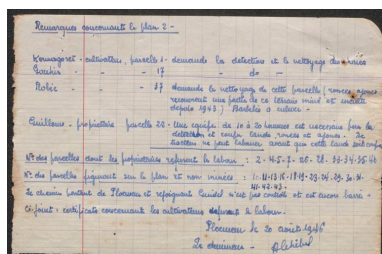 Remarques concernant le plan 2 -
Kermagoret - cultivateur, parcelle 1 - demande la détection et le nettoyage des
- - 17 - do -
Robic - - 37 demande le nettoyage de cette parcelle (ronces ajoncs
recouvrent une partie de ce terrain miné et inculte
depuis 1943) Barbelés à enlever -
Guillaume - propriétaire parcelle 28 - Une équipe de 10 à 20 hommes est nécessaire pour la
détection et coupe lande, ronces et ajoncs. Le
tracteur ne peut labourer avant que cette lande soit
Nos des parcelles dont les propriétaires refusent le labour : 2 - 4 - 5 - 7 - 20 - 28 - 33 - 34 - 35
Nos des parcelles figurant sur le plan et non minées :
41 - 42 - 43 -
Le chemin partant de Ploemeur et rejoignant Guidel n'est pas contrôlé et est encore barré -
Ci-joint : certificats concernant les cultivateurs refusant le labour.
Ploemeur le 20 août 1946
Le démineur -